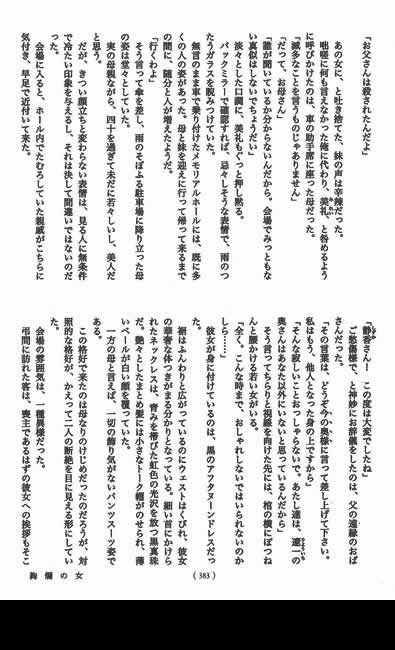 「お父さんは殺されたんだよ」
あの女に、と吐き捨てた、妹の声は辛辣だった。
咄嗟に何も言えなかった俺に代わり、美礼、と咎めるよう
に呼びかけたのは、車の助手席に座った母だった。
「滅多なことを言うものじゃありません」
「だって、お母さん」
「誰が聞いているか分からないんだから。会場でみっともな
い真似はしないでちょうだい」
淡々とした口調に、美礼もぐっと押し黙る。
バックミラーで確認すれば、忌々しそうな表情で、雨のつ
たうガラスを睨みつけていた。
無言のまま車で乗り付けたメモリアルホールには、既に多
くの人の姿があった。母と妹を迎えに行って帰って来るまで
の間に、随分と人が増えたようだ。
「行くわよ」
そう言って傘を差し、雨のそぼふる駐車場に降り立った母
の姿は堂々としていた。
実の母親ながら、四十を過ぎて未だに若々しいし、美人だ
と思う。
だが、きつい顔立ちと変わらない表情は、見る人に無条件
で冷たい印象を与えるし、それは決して間違いではないのだ
った。
会場に入ると、ホール内でたむろしていた親戚がこちらに
気付き、早足で近付いて来た。
「静香さん！　この度は大変でしたね」
ご愁傷様で、と神妙にお辞儀をしたのは、父の遠縁のおば
さんだった。
「その言葉は、どうぞ今の奥様に言って差し上げて下さい。
私はもう、他人となった身の上ですから」
「そんな寂しいことおっしゃらないで。あたし達は、遼一の
奥さんはあなた以外にいないと思っているんだから」
そう言ってちらりと視線を向けた先には、棺の横にぽつね
んと腰かける若い女がいる。
「全く。こんな時まで、おしゃれしないではいられないのか
しら……」
彼女が身に付けているのは、黒のアフタヌーンドレスだっ
た。
裾はふんわりと広がっているのにウエストはくびれ、彼女
の華奢な体つきがまる分かりとなっている。細い首にかけら
れたネックレスは、青みを帯びた虹色の光沢を放つ黒真珠
だ。艶々としたまとめ髪には小さなトーク帽がのせられ、薄
いベールが白い顔を覆っていた。
一方の母と言えば、一切の飾り気がないパンツスーツ姿で
ある。
この格好で来たのは母なりのけじめだったのだろうが、対
照的な格好が、かえって二人の断絶を目に見える形にしてい
た。
会場の雰囲気は、一種異様だった。
弔問に訪れた客は、喪主であるはずの彼女への挨拶もそこ
（383）
絢爛の女